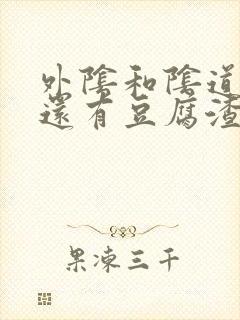 外陰和陰道
還有豆腐渣
果凍三千